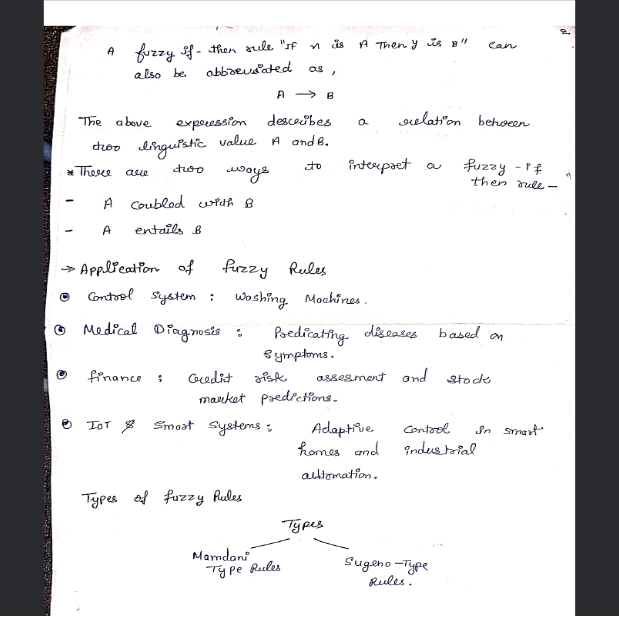 2
A fuzzy if-then rule "If x is A Then y is B" can
also be abbreviated as,
A → B
The above expression describes a relation between
two linguistic value A and B.
* There are two ways to interpret a fuzzy-if
then rule-
- A coubled with B
- A entails B
→ Application of fuzzy Rules
Control System : Washing Machines.
Medical Diagnosis : Predicating diseases based on
Symptoms.
finance : Credit risk assesment and stock
market predictions.
IoT & Smart Systems : Adaptive Control in smart
homes and industrial
automation.
Types of fuzzy Rules
Types
Mamdani Type Rules
Sugeno-Type Rules.